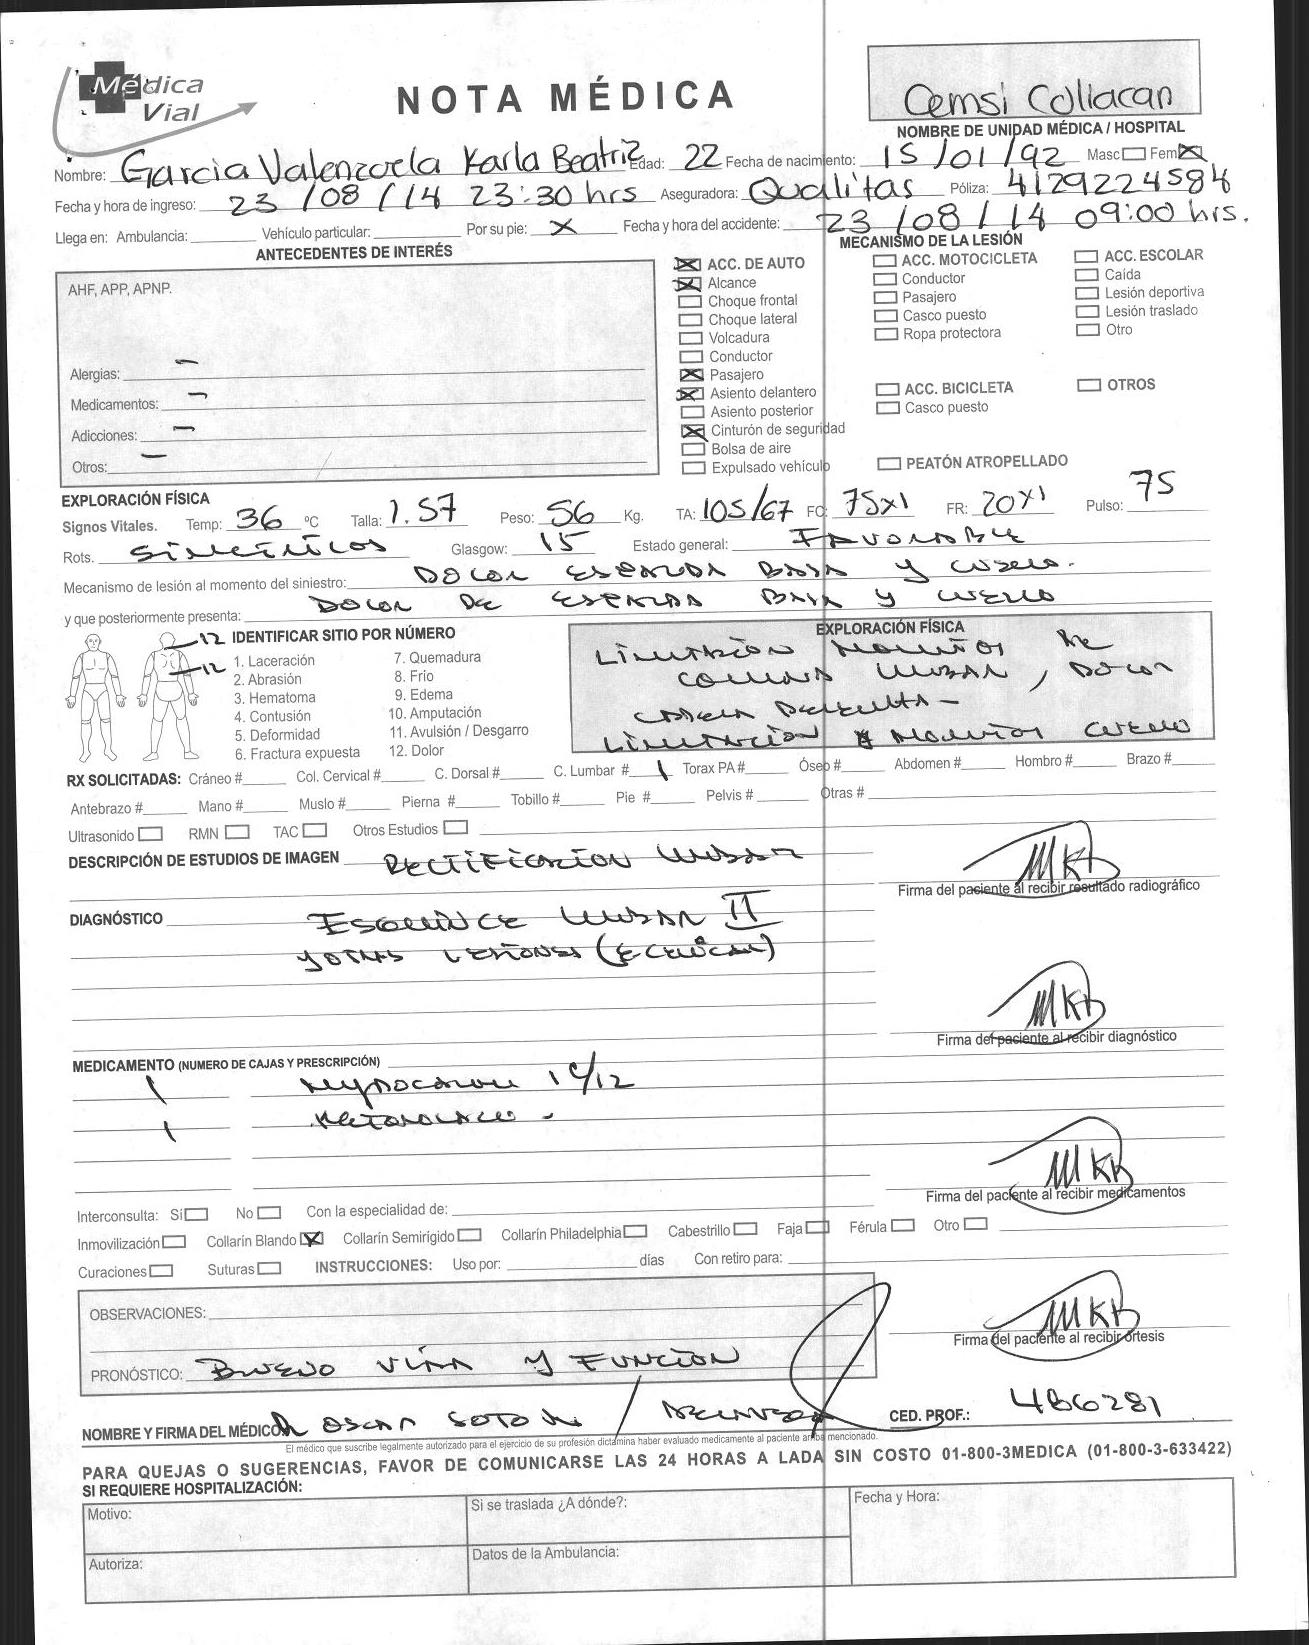 Médica
Vial
NOTA MÉDICA
Cemsi Culiacan
NOMBRE DE UNIDAD MÉDICA / HOSPITAL
Nombre: Garcia Valenzuela Karla Beatriz Edad: 22 Fecha de nacimiento: 15/01/92 Masc Fem X
Fecha y hora de ingreso: 23/08/14 23:30 hrs Aseguradora: Qualitas Póliza: 41292224584
Llega en: Ambulancia: Vehículo particular: Por su pie: X Fecha y hora del accidente: 23/08/14 09:00 hrs.
ANTECEDENTES DE INTERÉS
AHF, APP, APNP.
Alergias: –
Medicamentos: –
Adicciones: –
Otros: –
MECANISMO DE LA LESIÓN
X ACC. DE AUTO
X Alcance
Choque frontal
Choque lateral
Volcadura
Conductor
X Pasajero
X Asiento delantero
Asiento posterior
X Cinturón de seguridad
Bolsa de aire
Expulsado vehículo
ACC. MOTOCICLETA
Conductor
Pasajero
Casco puesto
Ropa protectora
ACC. BICICLETA
Casco puesto
PEATÓN ATROPELLADO
ACC. ESCOLAR
Caída
Lesión deportiva
Lesión traslado
Otro
OTROS
EXPLORACIÓN FÍSICA
Signos Vitales. Temp: 36 ºC Talla: 1.57 Peso: 56 Kg. TA: 105/67 FC: 75x1 FR: 20x1 Pulso: 75
Rots. Simetricos Glasgow: 15 Estado general: Favorable
Mecanismo de lesión al momento del siniestro: Dolor espalda baja y cuello.
y que posteriormente presenta: Dolor de espalda baja y cuello
12
12
IDENTIFICAR SITIO POR NÚMERO
1. Laceración
2. Abrasión
3. Hematoma
4. Contusión
5. Deformidad
6. Fractura expuesta
7. Quemadura
8. Frío
9. Edema
10. Amputación
11. Avulsión / Desgarro
12. Dolor
EXPLORACIÓN FÍSICA
Limitación de
columna lumbar, dolor
Limitacion cuello
RX SOLICITADAS: Cráneo # Col. Cervical # C. Dorsal # C. Lumbar # 1 Torax PA # Óseo # Abdomen # Hombro # Brazo #
Antebrazo # Mano # Muslo # Pierna # Tobillo # Pie # Pelvis # Otras #
Ultrasonido RMN TAC Otros Estudios
DESCRIPCIÓN DE ESTUDIOS DE IMAGEN Rectificacion lumbar
MKB
Firma del paciente al recibir resultado radiográfico
DIAGNÓSTICO Esguince lumbar II
y otras lesiones (E. cervical)
MKB
Firma del paciente al recibir diagnóstico
MEDICAMENTO (NUMERO DE CAJAS Y PRESCRIPCIÓN)
1 1 c/12
1 Ketorolaco -
MKB
Firma del paciente al recibir medicamentos
Interconsulta: Sí No Con la especialidad de:
Inmovilización Collarín Blando X Collarín Semirígido Collarín Philadelphia Cabestrillo Faja Férula Otro
Curaciones Suturas INSTRUCCIONES: Uso por: días Con retiro para:
OBSERVACIONES:
PRONÓSTICO: Bueno vida y función
MKB
Firma del paciente al recibir órtesis
NOMBRE Y FIRMA DEL MÉDICO: Dr Oscar Soto CED. PROF.: 486281
El médico que suscribe legalmente autorizado para el ejercicio de su profesión dictámina haber evaluado medicamente al paciente arriba mencionado.
PARA QUEJAS O SUGERENCIAS, FAVOR DE COMUNICARSE LAS 24 HORAS A LADA SIN COSTO 01-800-3MEDICA (01-800-3-633422)
SI REQUIERE HOSPITALIZACIÓN:
Motivo: Si se traslada ¿A dónde?: Fecha y Hora:
Autoriza: Datos de la Ambulancia: